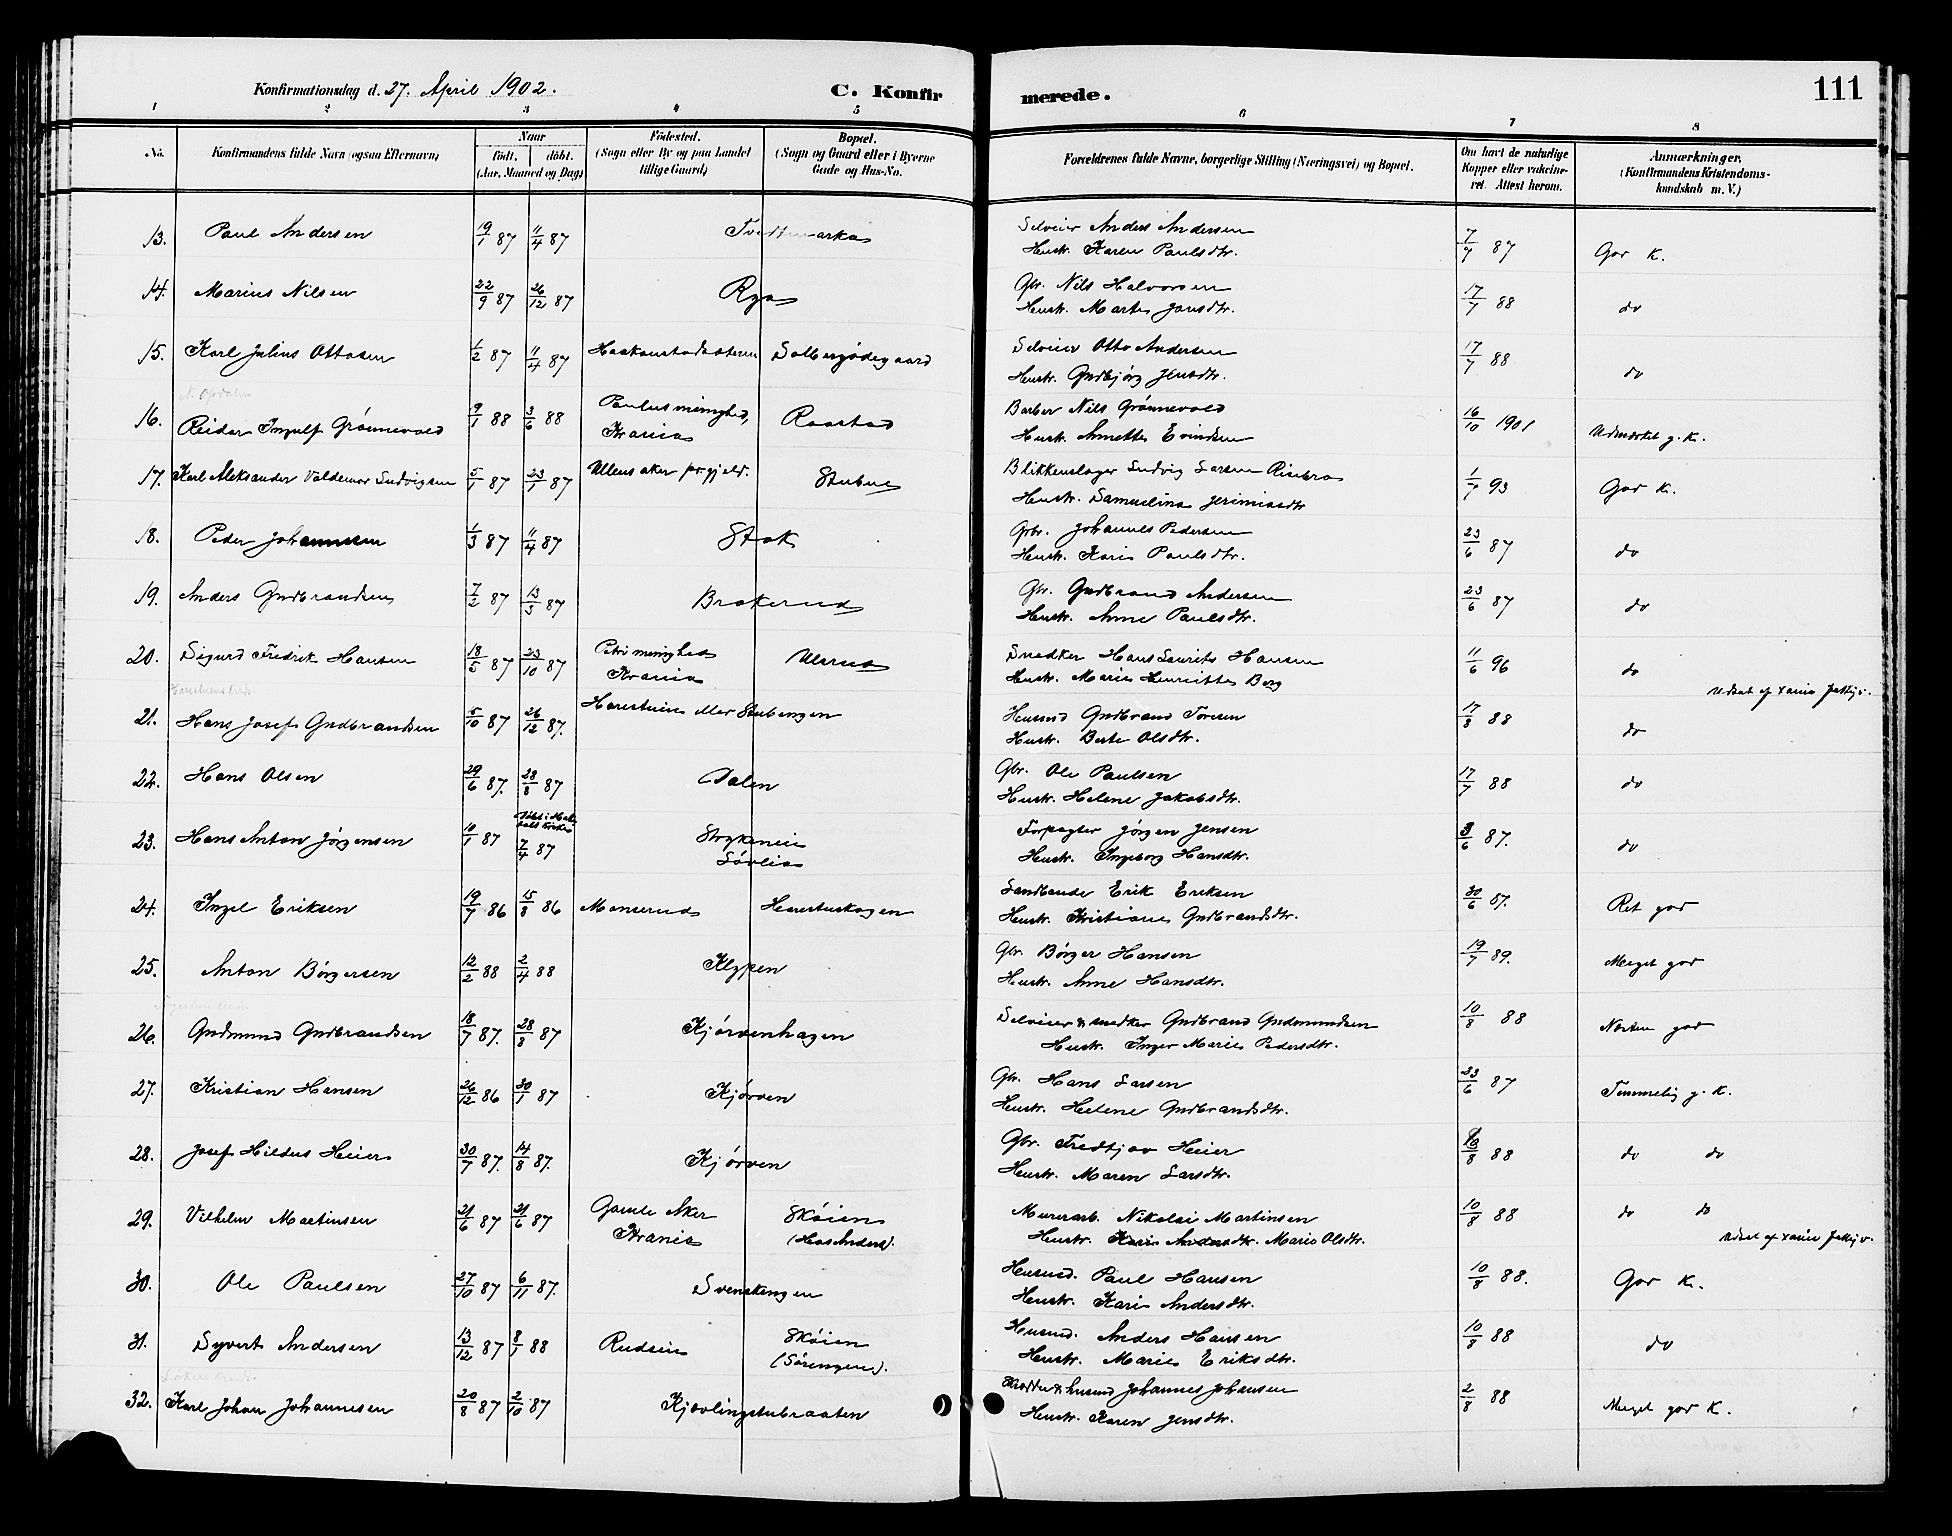 Konfirmationsdag d. 27. April 1902.
C. Konfirmerede.
111
1 2 3 4 5 6 7 8
No.
Konfirmandens fulde Navn (ogsaa Efternavn)
Naar
födt. döbt.
(Aar, Maaned og Dag)
Födested.
(Sogn eller By og paa Landet
tillige Gaard)
Bopæl.
(Sogn og Gaard eller i Byerne
Gade og Hus-No.
Forældrenes fulde Navne, borgerlige Stilling (Næringsvei) og Bopæl.
Om havt de naturlige
Kopper eller vakcine-
ret. Attest herom.
Anmærkninger.
(Konfirmandens Kristendoms-
kundskab m. V.)
13. Paul Andersen 19/1 87 11/4 87 Tvedtmarka Selveier Anders Andersen 7/7 87 God K.
Hustr. Karen Paulsdtr.
14. Marius Nilsen 22/9 87 26/12 87 Rya Gbr. Nils Halvorsen 17/7 88 do
Hustr. Marte Jonsdtr.
15. Karl Julius Ottosen 1/2 87 11/4 87 Solbergødegaard Selveier Otto Andersen 17/7 88 do
Hustr. Gudbjörg Jensdtr.
N. Opdalen
16. Reidar Ingulf Grönnevold 9/1 88 3/6 88 Paulus menighed, Raastad Barber Nils Grönnevold 16/10 1901 Udmærket g. K.
Krania Hustr. Annette Evindsen
17. Karl Aleksander Valdemar Ludvigsen 5/1 87 23/1 87 Ullensaker pr.gjeld. Stubne Blikkenslager Ludvig Larsen Risebro 1/7 93 God K.
Hustr. Samueline Jerimiasdtr
18. Peder Johannesen 1/3 87 11/4 87 Stak Gbr. Johannes Pedersen 23/6 87 do
Hustr. Kari Paulsdtr.
19. Anders Gudbrandsen 7/2 87 13/3 87 Brakerud Gbr. Gudbrand Andersen 23/6 87 do
Hustr. Anne Paulsdtr.
20. Sigurd Fredrik Hansen 18/5 87 23/10 87 Petri menighed Ulsrud Snedker Hans Laurits Hansen 11/6 96 do
Krania Hustr. Marie Henriette Berg
Udsat af
21. Hans Josef Gudbrandsen 5/10 87 26/12 87. Harestuen eller Stubengen Husmd Gudbrand Toresen 17/8 88 do
Hustr. Berte Olsdtr.
22. Hans Olsen 29/6 87. 28/8 87 Dalen Gbr. Ole Paulsen 17/7 88 do
Hustr. Helene Jakobsdtr.
23. Hans Anton Jörgensen 10/1 87 7/4 87 Strykeneie Forpagter Jörgen Jensen 3/6 87. do
Lövlia Hustr. Ingeborg Hansdtr.
24. Ingel Eriksen 19/7 86 15/8 86 Monserud Harestuskogen Landhandl Erik Eriksen 30/6 87. Ret god
Hustr. Kristiane Gudbrandsdtr.
25. Anton Börgersen 12/2 88 2/4 88 Klypen Gbr. Börger Hansen 19/7 89. Meget god
Hustr. Anne Hansdtr.
26. Gudmund Gudbrandsen 18/7 87. 28/8 87 Kjørvenhagen Selveier & snedker Gudbrand Gudmundsen 10/8 88 Næsten god
Hustr. Inger Marie Pedersdtr.
27. Kristian Hansen 26/12 86 30/1 87 Kjørven Gbr. Hans Larsen 23/6 87 Temmelig g. K.
Hustr. Helene Gudbrandsdtr.
28. Josef Hildus Heier 30/7 87. 14/8 87. Kjørven Gbr. Fredtjov Heier 10/8 88 do do
Hustr. Maren Larsdtr.
29. Vilhelm Martinsen 21/6 87 21/6 87 Gamle Aker Sköien Murerarb. Nikolai Martinsen 10/8 88 do do
Krania Hustr. Kari Andersdtr. Marie Olsdtr. Udsat af
30. Ole Paulsen 27/10 87 6/11 87. Svenskengen Husmd. Paul Hansen 10/8 88. God K.
Hustr. Kari Andersdtr.
31. Syvert Andersen 13/12 87 8/1 88 Rudseie Sköien Husmd. Anders Hansen 10/8 88 do
(Sörengen). Hustr. Marie Eriksdtr.
32. Karl Johan Johannesen 20/8 87 2/10 87 Kjevlingstubraaten Skrædder & husmd Johannes Johansen 2/8 88 Meget god K.
Hustr. Karen Jensdtr.